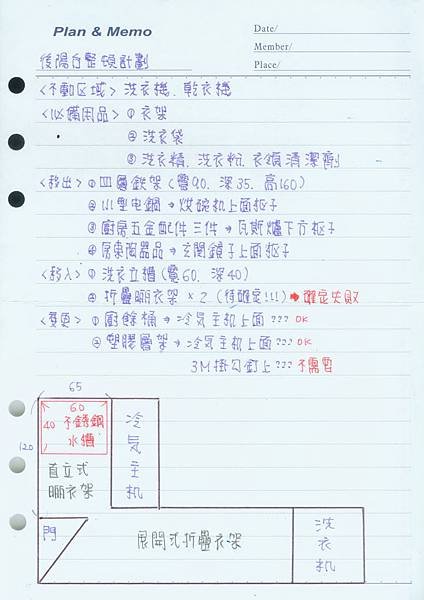 Plan & Memo
Date/
Member/
Place/
後陽台整頓計劃
<不動区域> 洗衣機、乾衣機
<必備用品> ① 衣架
② 洗衣袋
③ 洗衣精、洗衣粉、衣領清潔劑
<移出> ① 四層鉄架 (寬90. 深35. 高160)
② 小型电鍋 → 烘碗机上面柜子
③ 廚房五金配件三件 → 瓦斯爐下方柜子
④ 屏東陶器品 → 玄関鏡子上面柜子
<移入> ① 洗衣立槽 (寬60. 深40)
② 折疊晒衣架 × 2 (待確定!!!) → 確定失敗
<変更> ① 廚餘桶 → 冷気主机上面??? OK
② 塑膠層架 → 冷気主机上面??? OK
3M掛勾釘上??? 不需要
65
60
40 不銹鋼
水槽
120
直立式
晒衣架
冷気主机
門
展開式折疊衣架
洗衣机